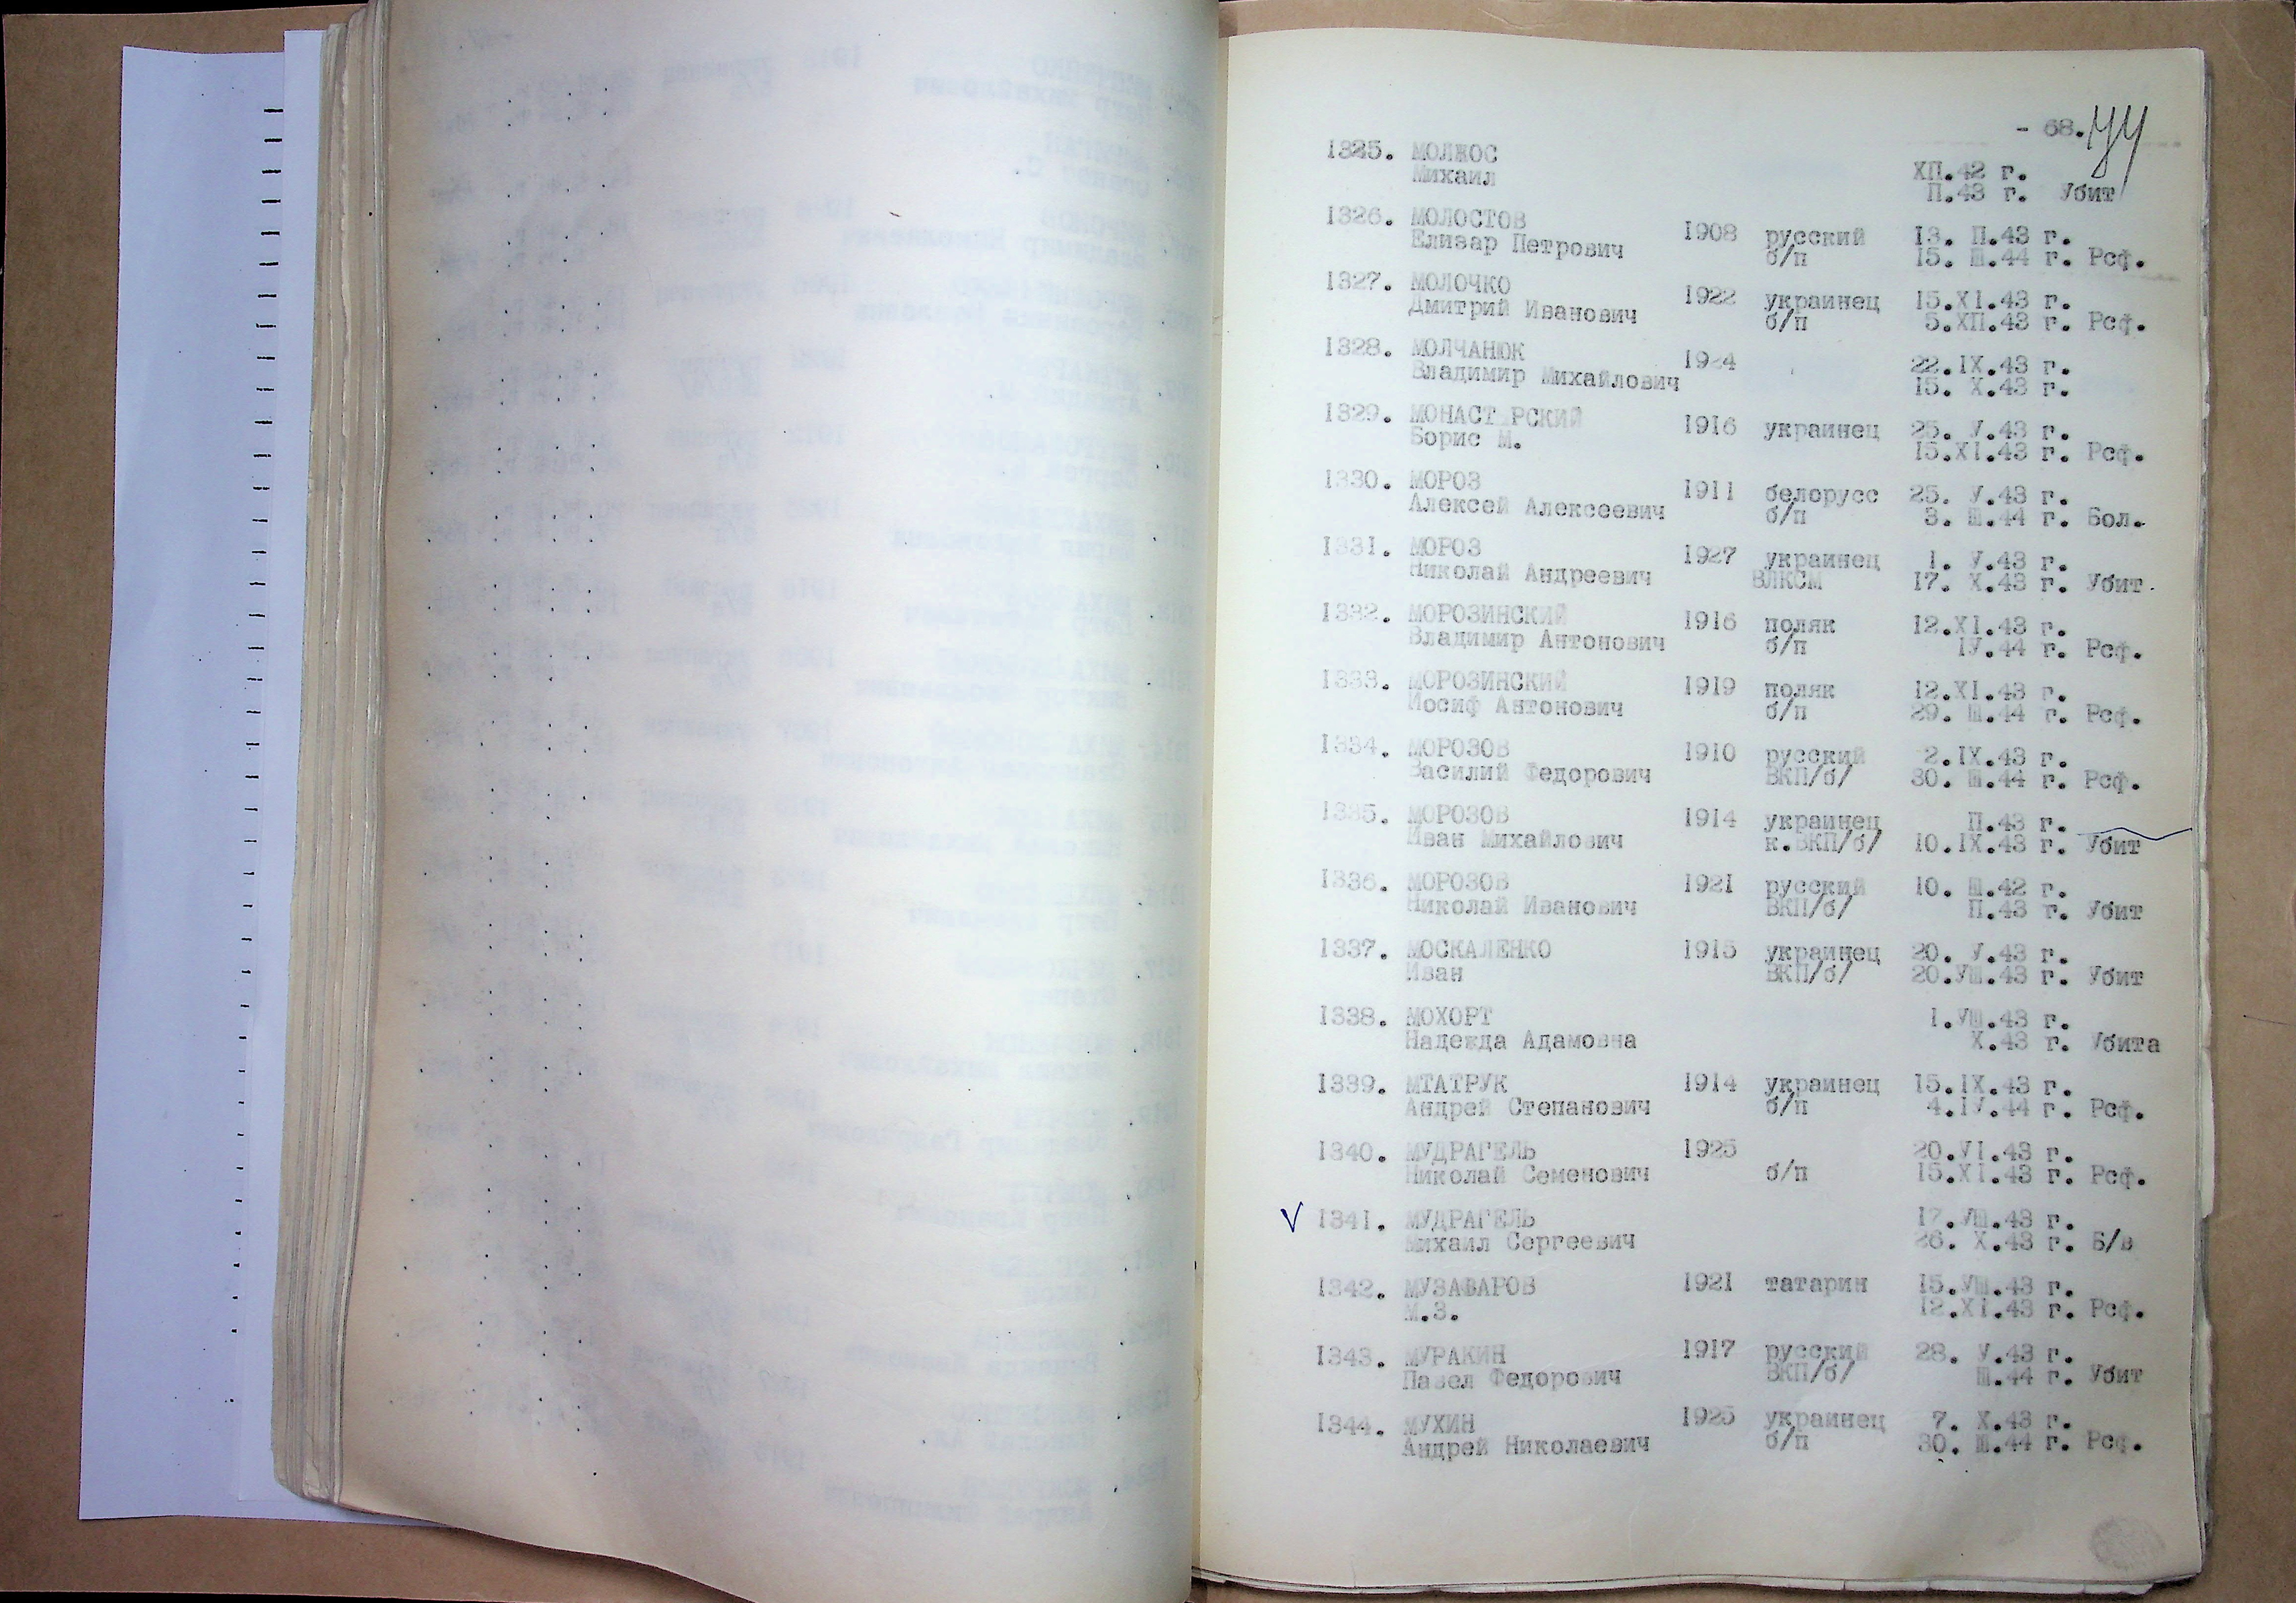 - 68. 74
1325. МОЛЖОС
Михаил
ХП.42 г.
П.43 г. Убит
1326. МОЛОСТОВ 1908 русский 13. П.43 г.
Елизар Петрович б/п 15. Ш.44 г. Рсф.
1327. МОЛОЧКО 1922 украинец 15.XI.43 г.
Дмитрий Иванович б/п 5.ХП.43 г. Рсф.
1328. МОЛЧАНЮК 1924 22.IX.43 г.
Владимир Михайлович 15. X.43 г.
1329. МОНАСТ РСКИЙ 1916 украинец 25. У.43 г.
Борис М. 15.XI.43 г. Рсф.
1330. МОРОЗ 1911 белорусс 25. У.43 г.
Алексей Алексеевич б/п 3. Ш.44 г. Бол.
1331. МОРОЗ 1927 украинец 1. У.43 г.
Николай Андреевич ВЛКСМ 17. X.43 г. Убит.
1332. МОРОЗИНСКИЙ 1916 поляк 12.XI.43 г.
Владимир Антонович б/п IУ.44 г. Рсф.
1333. МОРОЗИНСКИЙ 1919 поляк 12.XI.43 г.
Иосиф Антонович б/п 29. Ш.44 г. Рсф.
1334. МОРОЗОВ 1910 русский 2.IX.43 г.
Василий Федорович ВКП/б/ 30. Ш.44 г. Рсф.
1335. МОРОЗОВ 1914 украинец П.43 г.
Иван Михайлович к.ВКП/б/ 10.IX.43 г. Убит
1336. МОРОЗОВ 1921 русский 10. Ш.42 г.
Николай Иванович ВКП/б/ П.43 г. Убит
1337. МОСКАЛЕНКО 1915 украинец 20. У.43 г.
Иван ВКП/б/ 20.УШ.43 г. Убит
1338. МОХОРТ 1.УШ.43 г.
Надежда Адамовна X.43 г. Убита
1339. МТАТРУК 1914 украинец 15.IX.43 г.
Андрей Степанович б/п 4.IУ.44 г. Рсф.
1340. МУДРАГЕЛЬ 1925 20.УI.43 г.
Николай Семенович б/п 15.XI.43 г. Рсф.
1341. МУДРАГЕЛЬ 17.УШ.43 г.
Михаил Сергеевич 26. X.43 г. Б/в
1342. МУЗАФАРОВ 1921 татарин 15.УШ.43 г.
М.З. 12.XI.43 г. Рсф.
1343. МУРАКИН 1917 русский 28. У.43 г.
Павел Федорович ВКП/б/ Ш.44 г. Убит
1344. МУХИН 1925 украинец 7. X.43 г.
Андрей Николаевич б/п 30. Ш.44 г. Рсф.